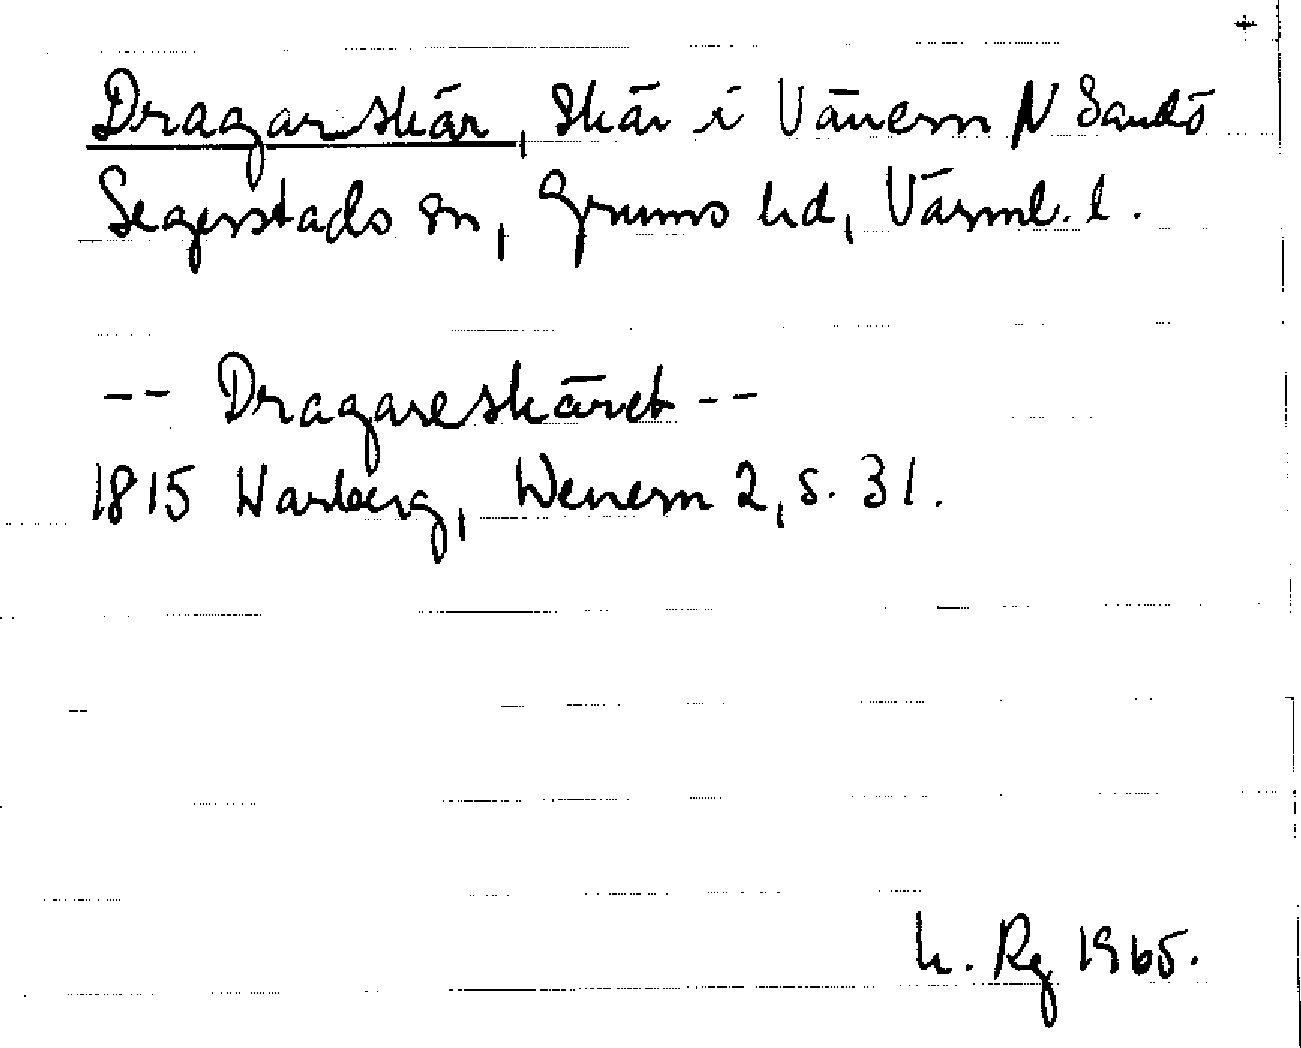 +
Dragarskär, Skär i Vänern N Sandö
Segerstads sn, Grums hd, Värml. l.
-- Dragareskäret --
1815 Warberg, Wenern 2, s. 31.
h. Rg 1965.